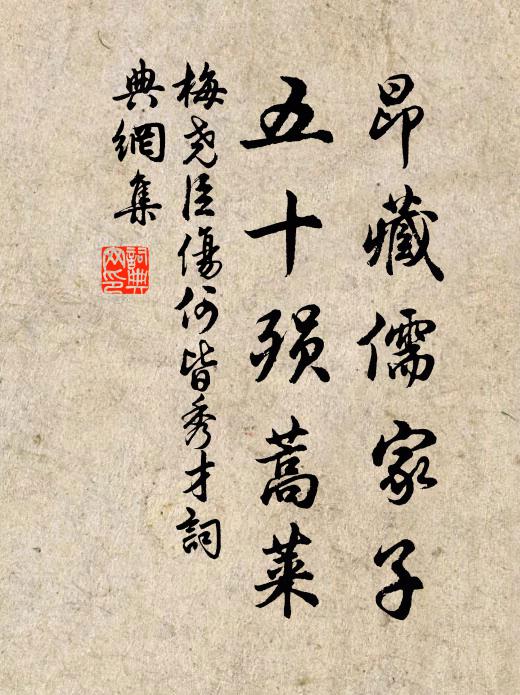 昂藏儒家子
五十殞蒿萊
梅堯臣傷何皆秀才詞
典網集
詞典
网印